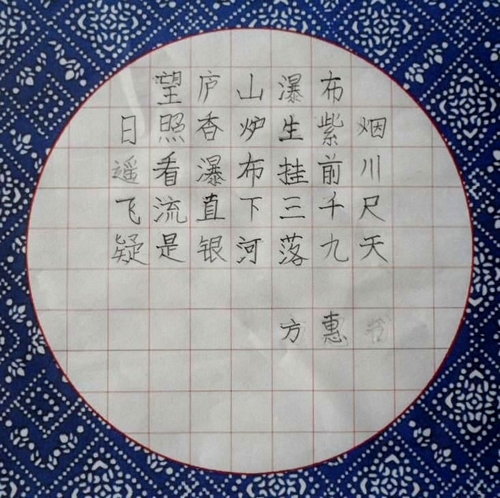 望庐山瀑布
日照香炉生紫烟
遥看瀑布挂前川
飞流直下三千尺
疑是银河落九天
方惠